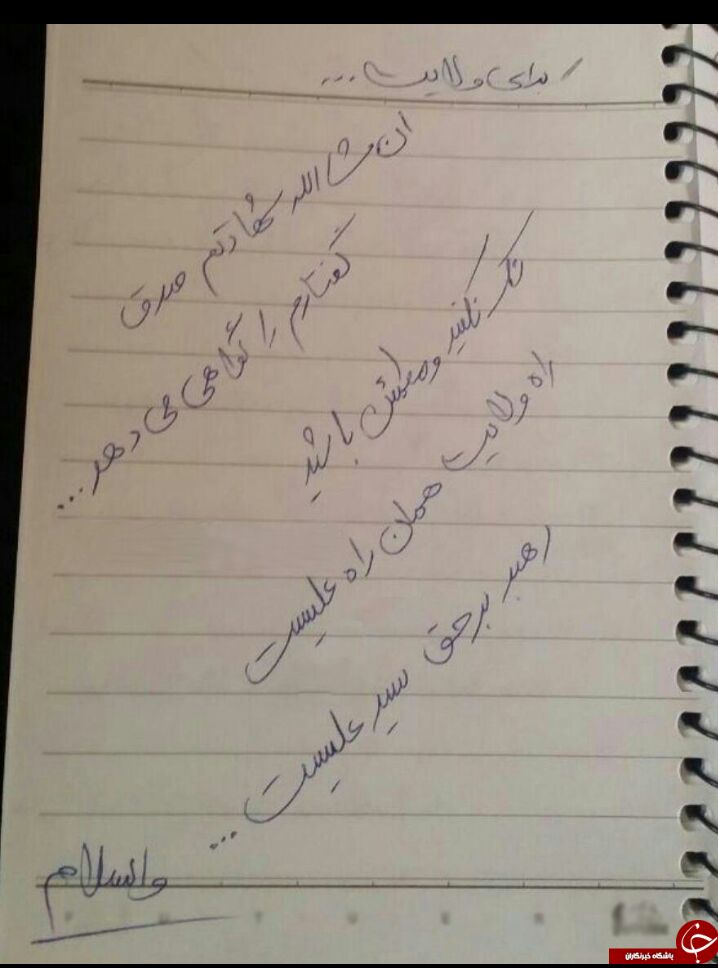 برای ولایت...
ان شاالله شهادتم صدق
گفتارم را گواهی می دهد...
شک نکنید و مطمئن باشید
راه ولایت همان راه علیست
رهبر برحق سید علیست...
والسلام
باشگاه خبرنگاران